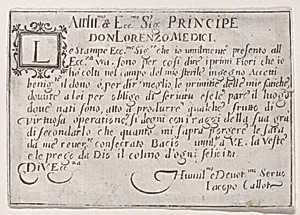 Al Ill.mo & Ecc.mo Sig.r PRINCIPE
DON LORENZO MEDICI.
LE Stampe Ecc.mo Sig.re che io umilmente presento all'
Ecc.za Vra. sono per cosi dire i primi Fiori che io
hò colti nel campo del mio sterile ingegno Accetti
benig.te il dono ò per dir meglio le primitie delle mie fatiche,
dovute a lei per obbligo di servitu ese le pare il luogo
dove nati sono, atto à produrre qualche frutto di
virtuosa operatione, si degni con i raggi della sua gra
di secondarlo che quanto mi saprà porgere le sara
da me rever.te consecrato Bacio umil.te à V.E. la veste
e le prego da Dio il colmo d'ogni felicita
Di V. Ecc.za
Humiliss.o e Devot.mo Seruo
Iacopo Callot